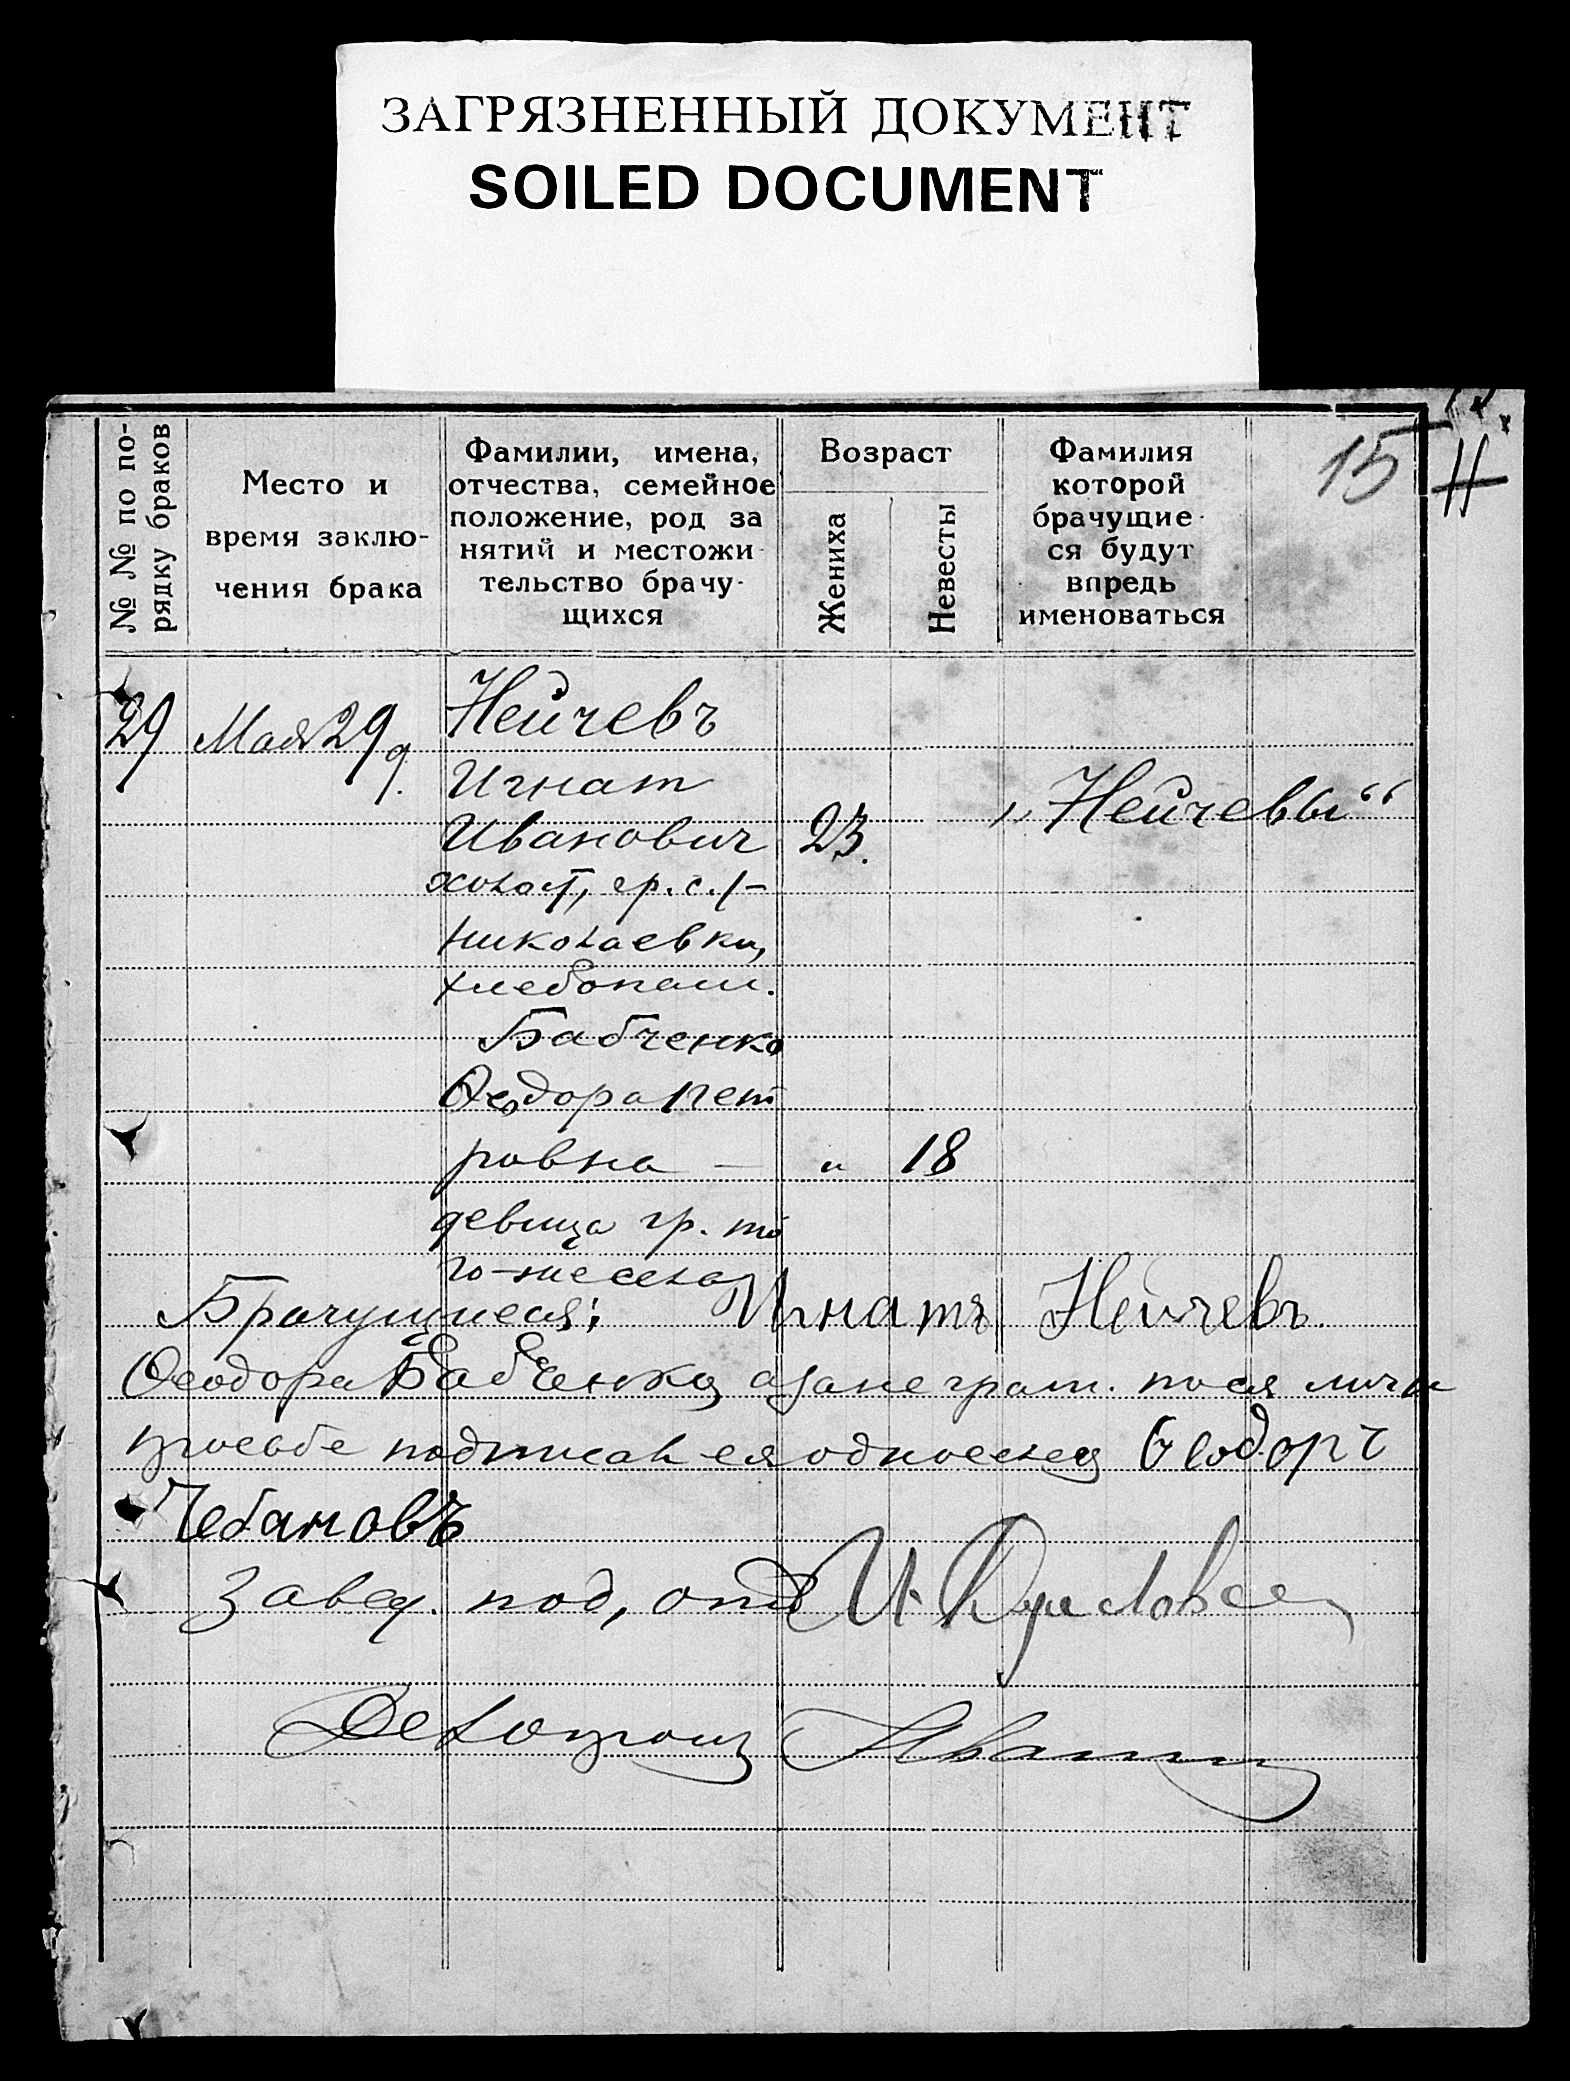 ЗАГРЯЗНЕННЫЙ ДОКУМЕНТ
SOILED DOCUMENT
15
№ № по по-
рядку браков
Место и
время заклю-
чения брака
Фамилии, имена,
отчества, семейное
положение, род за
нятий и местожи
тельство брачу-
щихся
Возраст
Жениха
Невесты
Фамилия
которой
брачущие-
ся будут
впредь
именоваться
29 Мая 29 д. Нейчевъ
Игнат
Иванович 23. „Нейчевы“
холост, гр. с.
Николаевки,
хлебопаш.
Бабченко
Феодора Пет
ровна — " 18
девица гр. то
го-же села
Брачущиеся: Игнатъ Нейчевъ
Феодора Бабченко, а за не грам. по ея личн
просьбе подписался односелец Феодоръ
Чебановъ
Завед. под, отд И.
Делопроиз